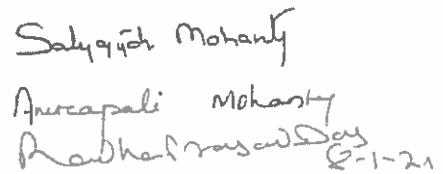 Satyajit Mohanty
Anurcapali Mohanty
Radha Prasad Das
8-1-21